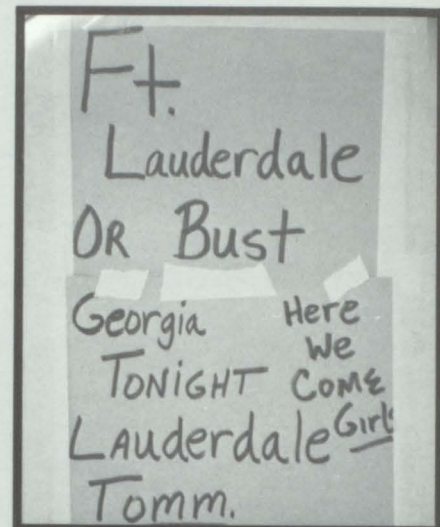 Ft.
Lauderdale
OR Bust
Georgia
TONIGHT
LAuderdale
Tomm.
Here
We
COME
Girls